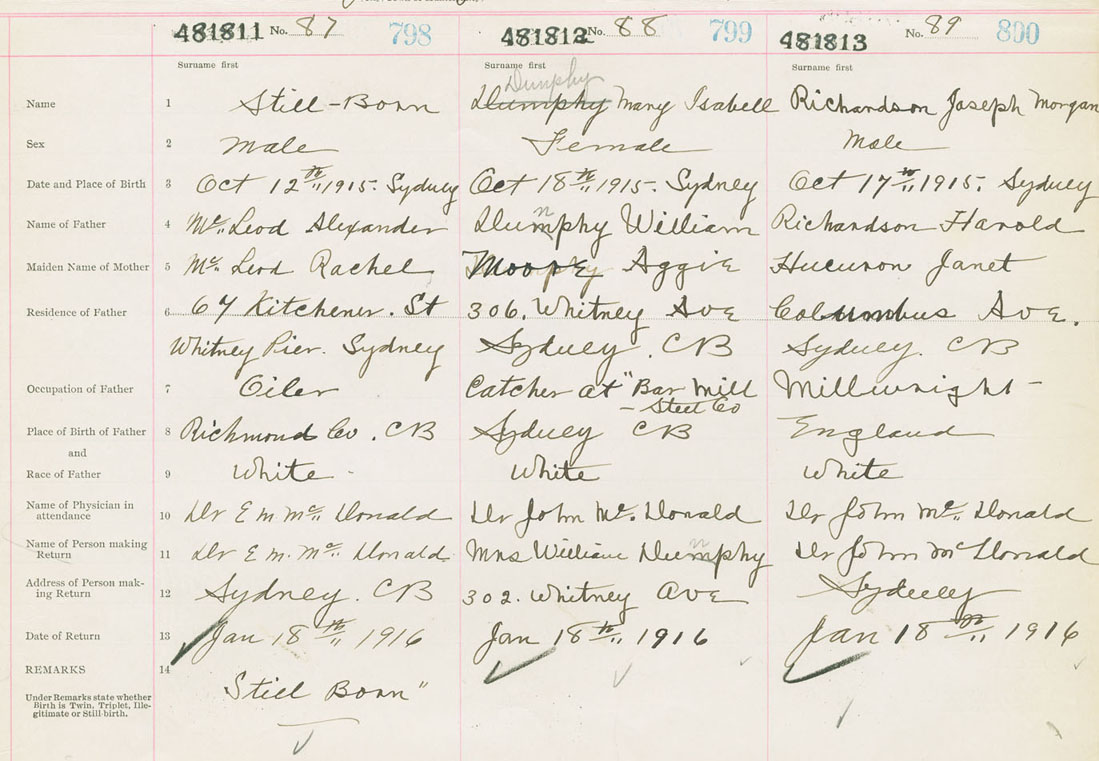 481811 No. 87 798 481812 No. 88 799 481813 No. 89 800
Surname first Surname first Surname first
Dunphy
Name 1 Still-Born Dumphy Mary Isabell Richardson Joseph Morgan
Sex 2 Male Female Male
Date and Place of Birth 3 Oct 12th 1915. Sydney Oct 18th 1915. Sydney Oct 17th 1915. Sydney
Name of Father 4 Mc Leod Alexander Dumphy William Richardson Harold
n
Maiden Name of Mother 5 Mc Leod Rachel Aggie Janet
Residence of Father 6 67 Kitchener. St 306. Whitney Ave Columbus Ave.
Whitney Pier. Sydney Sydney. CB Sydney. CB
Occupation of Father 7 Oiler Catcher at "Bar Mill Millwright -
- Steel Co
Place of Birth of Father 8 Richmond Co. CB Sydney CB England
and
Race of Father 9 White White White
Name of Physician in
attendance 10 Dr E M Mc Donald Dr John Mc Donald Dr John Mc Donald
Name of Person making
Return 11 Dr E M. Mc Donald Mrs William Dumphy Dr John Mc Donald
n
Address of Person mak-
ing Return 12 Sydney. CB 302. Whitney Ave Sydney
Date of Return 13 Jan 18th 1916 Jan 18th 1916 Jan 18th 1916
REMARKS 14
Still Born"
Under Remarks state whether
Birth is Twin, Triplet, Ille-
gitimate or Still-birth.